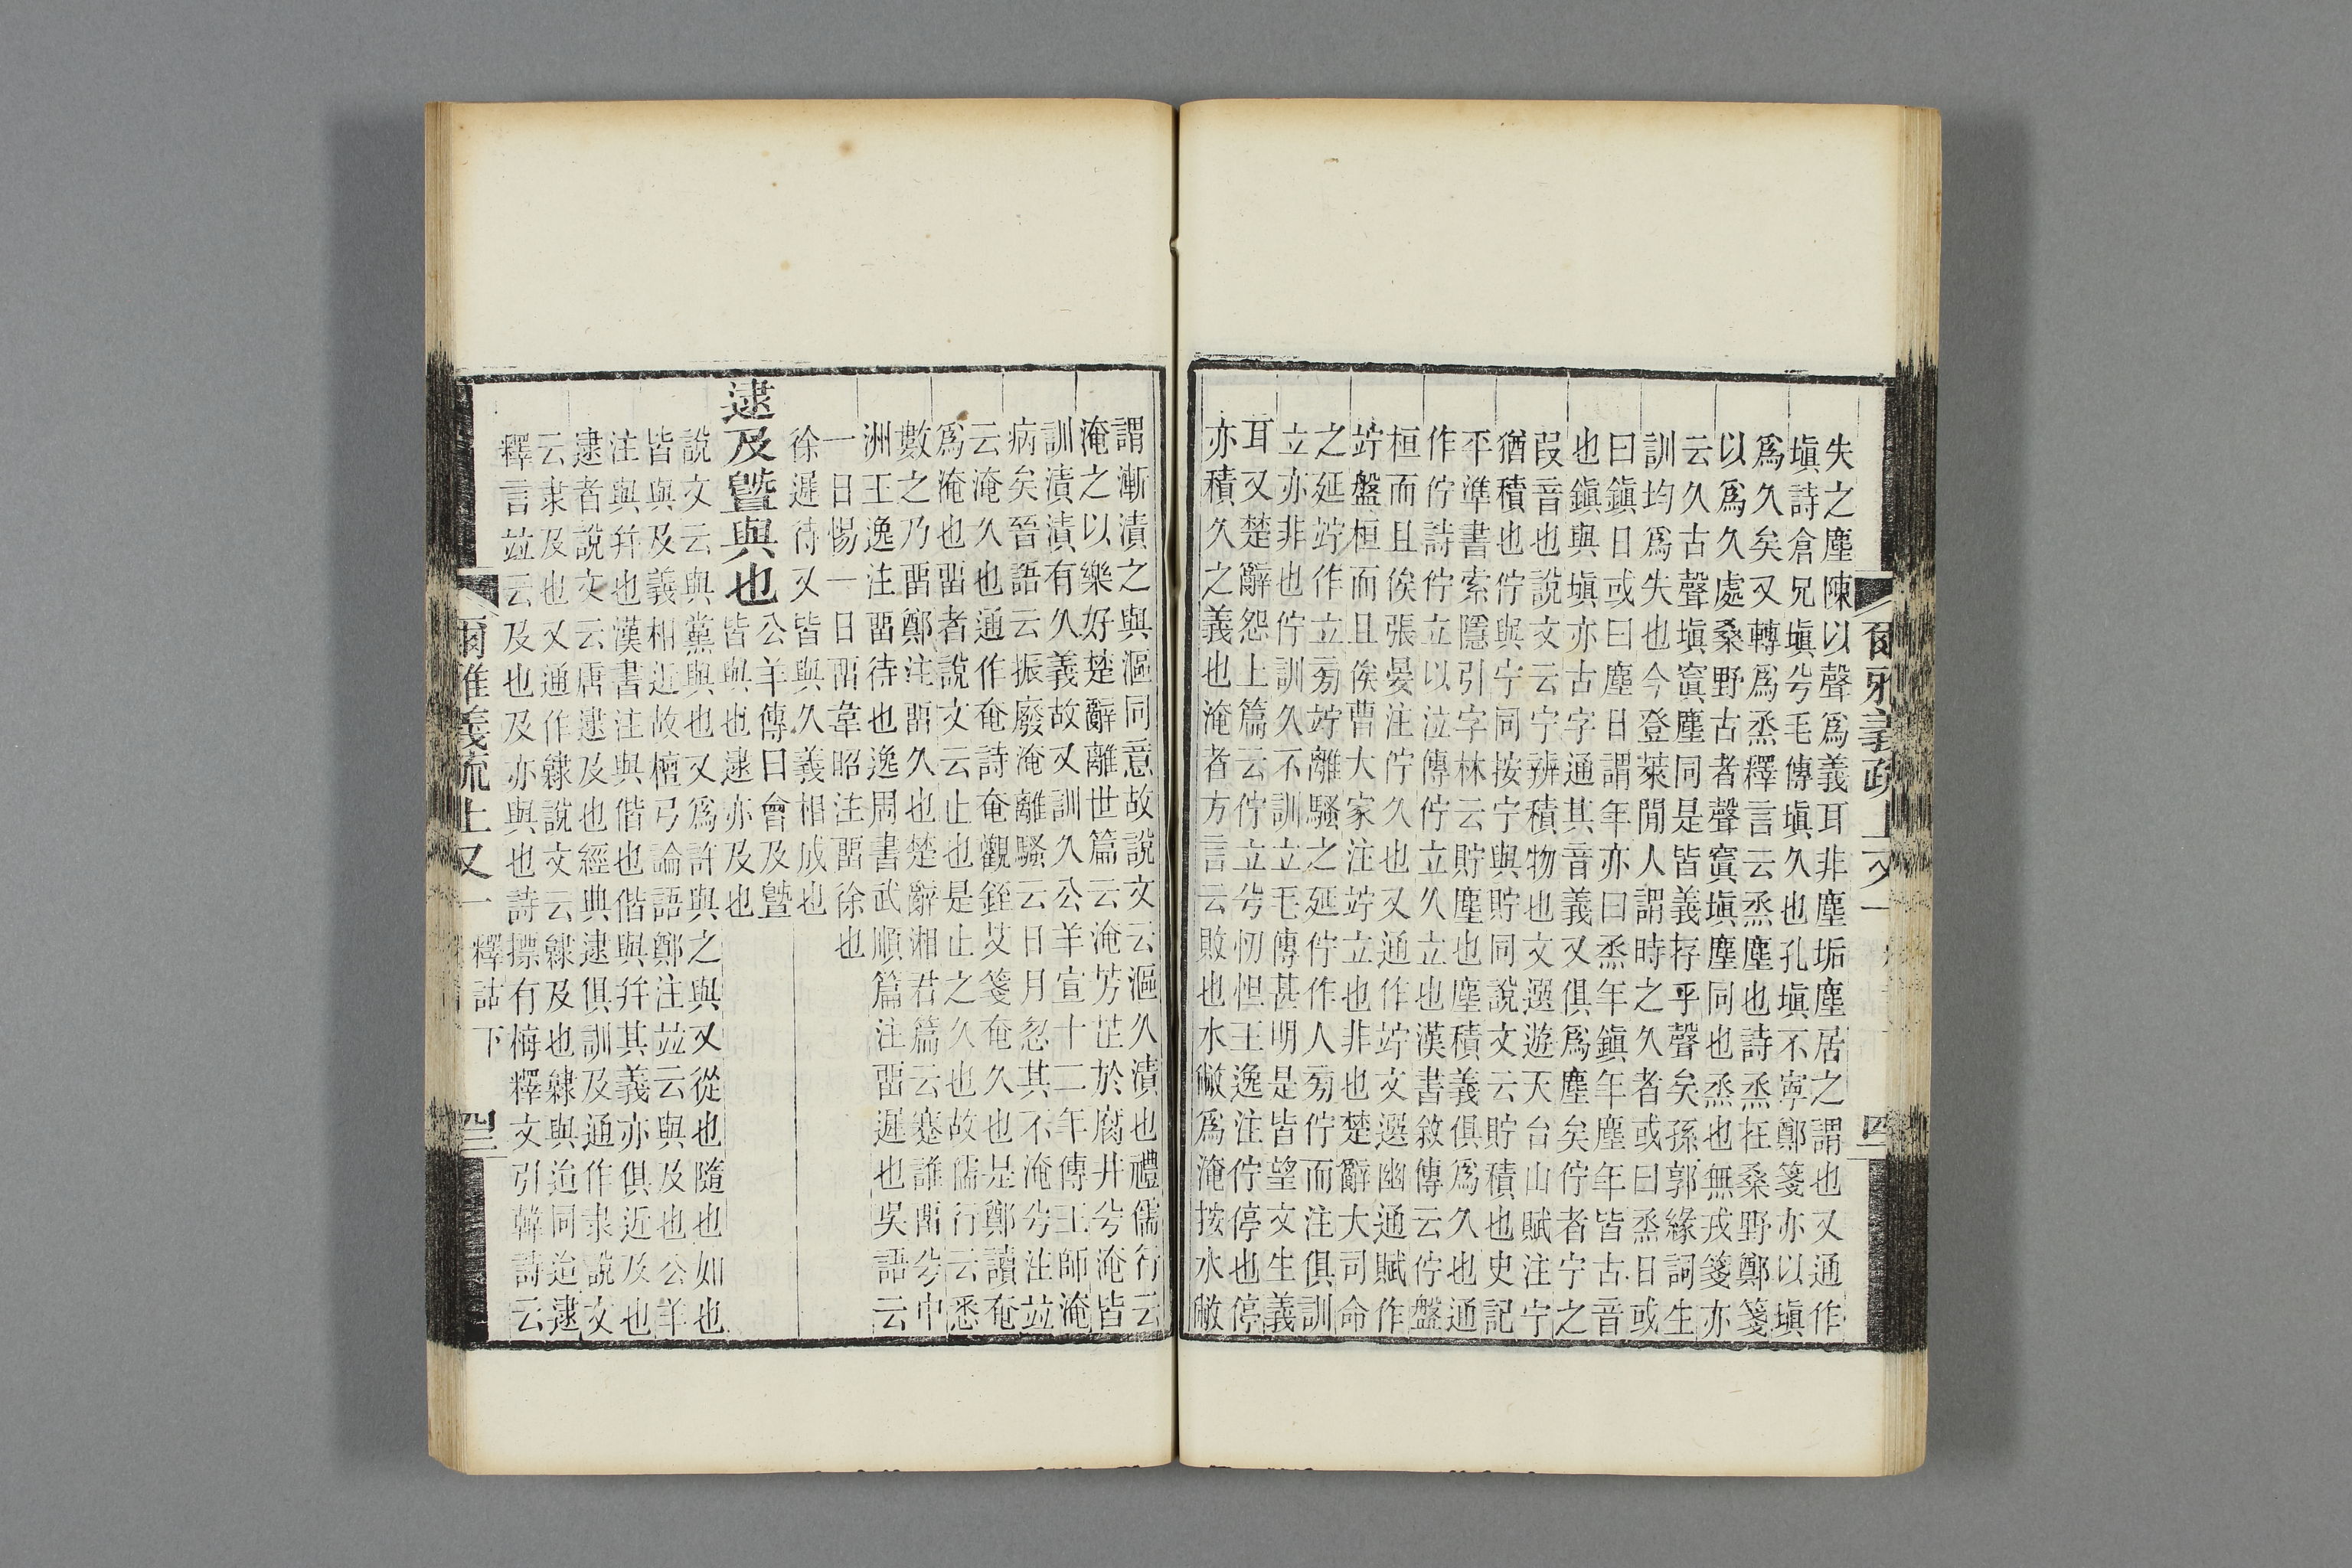 失之塵陳以聲爲義耳非塵垢塵居之謂也又通作
塡詩倉兄塡兮毛傳塡久也孔塡不寧鄭箋亦以塡
爲久矣又轉爲烝釋言云烝塵也詩烝在桑野鄭箋
以爲久處桑野古者聲窴塡塵同也烝也無戎箋亦
云久古聲塡窴塵同是皆義存乎聲矣孫郭緣詞生
訓均爲失也今登萊閒人謂時之久者或曰烝日或
曰鎭日或曰塵日謂年亦曰烝年鎭年塵年皆古音
也鎭與塡亦古字通其音義又俱爲塵矣佇者宁之
叚音也說文云宁辨積物也文選遊天台山賦注宁
猶積也佇與宁同按宁與貯同說文云貯積也史記
平準書索隱引字林云貯塵也塵積義俱爲久也通
作佇詩佇立以泣傳佇立久立也漢書敘傳云佇盤
桓而且俟張晏注佇久也又通作竚文選幽通賦作
竚盤桓而且俟曹大家注竚立也非也楚辭大司命
之延竚作立旁竚離騷之延佇作人旁佇而注俱訓
立亦非也佇訓久不訓立毛傳甚明是皆望文生義
耳又楚辭怨上篇云佇立兮忉怛王逸注佇停也停
亦積久之義也淹者方言云敗也水敝爲淹按水敝
謂漸漬之與漚同意故說文云漚久漬也禮儒行云
淹之以樂好楚辭離世篇云淹芳芷於腐井兮淹皆
訓漬漬有久義故又訓久公羊宣十二年傳王師淹
病矣晉語云振廢淹離騷云日月忽其不淹兮注竝
云淹久也通作奄詩奄觀銍艾箋奄久也是鄭讀奄
爲淹也畱者說文云止也是止之久也故儒行云悉
數之乃畱鄭注畱久也楚辭湘君篇云蹇誰畱兮中
洲王逸注畱待也逸周書武順篇注畱遲也吳語云
一日惕一日畱韋昭注畱徐也
徐遲待又皆與久義相成也
逮及曁與也
公羊傳曰會及曁
皆與也逮亦及也
說文云與黨與也又爲許與之與又從也隨也如也
皆與及義相近故檀弓論語鄭注竝云與及也公羊
注與幷也漢書注與偕也偕與幷其義亦俱近及也
逮者說文云唐逮及也經典逮俱訓及通作隶說文
云隶及也又通作隸說文云隸及也隸與迨同迨逮
釋言竝云及也及亦與也詩摽有梅釋文引韓詩云
爾雅義疏上又一 釋詁下